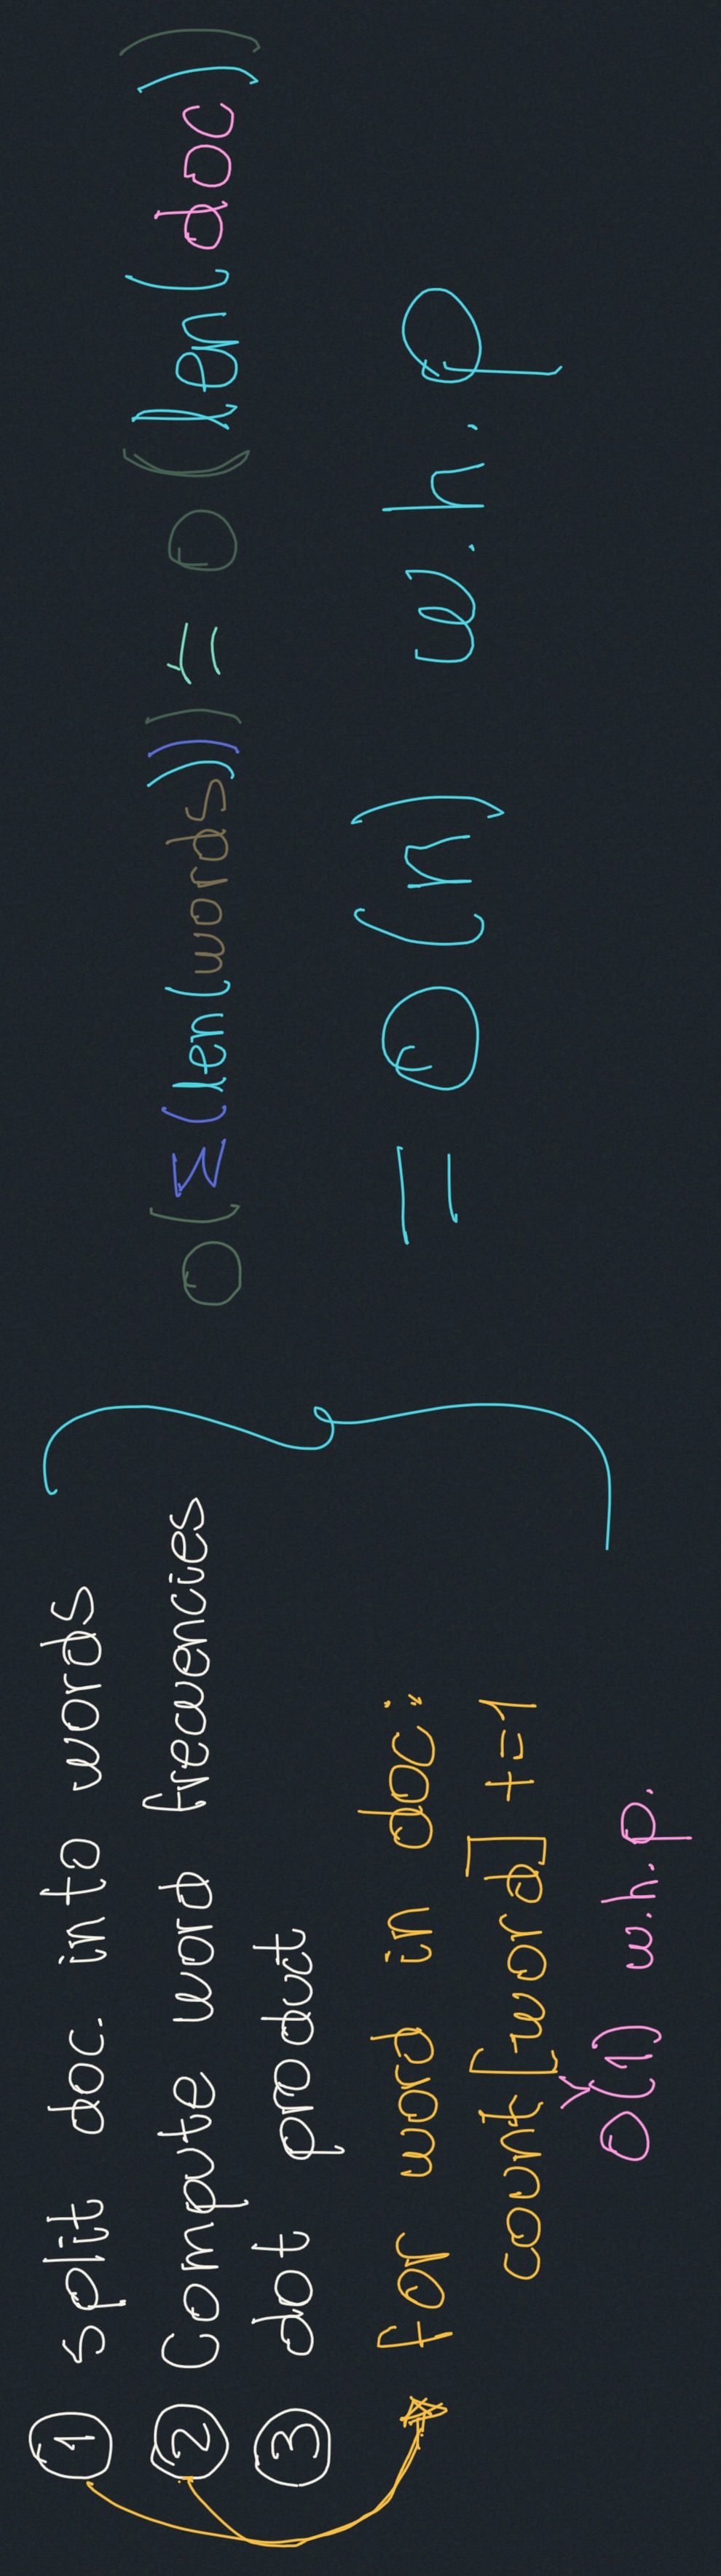 ① split doc. into words
② Compute word frecuencies
③ dot product
for word in doc:
count[word] +=1
O(1) w.h.p.
O(Σ(len(words))) = O(len(doc))
= O(n) w.h.p